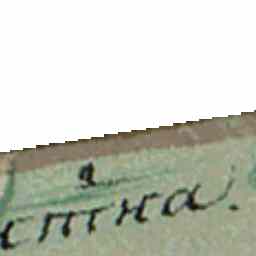 стна.